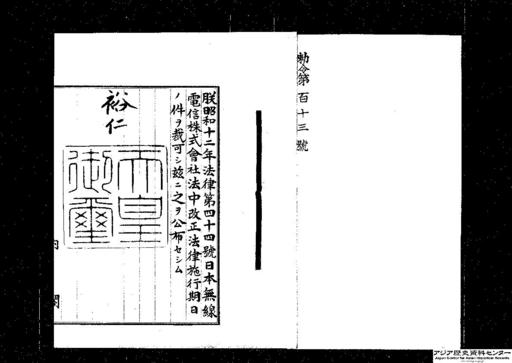 勅令第百十三號
朕昭和十二年法律第四十四號日本無線
電信株式會社法中改正法律施行期日
ノ件ヲ裁可シ茲ニ之ヲ公布セシム
裕仁
天皇
御璽
内閣
アジア歴史資料センター
Japan Center for Asian Historical Records